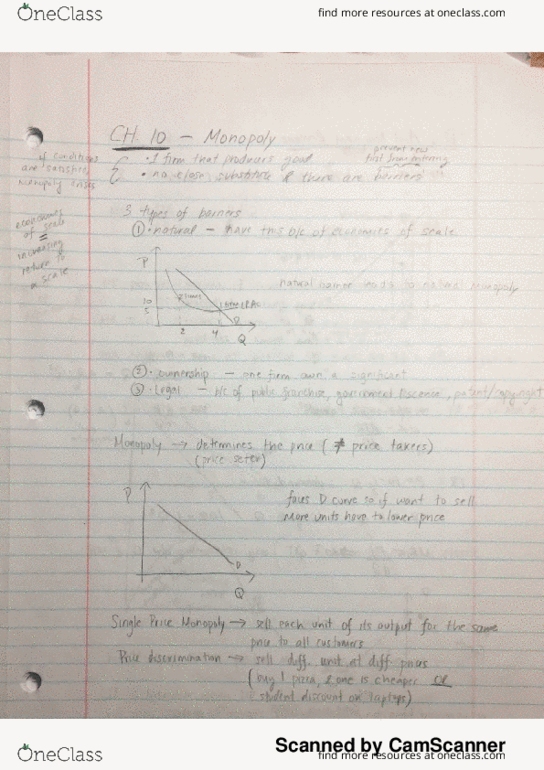 OneClass
find more resources at oneclass.com
CH 10 - Monopoly
if conditions are satisfied, monopoly arises
· 1 firm that produces good
prevent new firms from entering
· no close substitute & there are barriers
3 types of barriers
① · natural - have this b/c of economies of scale
economies of scale = increasing return to a scale
natural barrier leads to natural monopoly
P
2 firms
1 firm LRAC
10
5
D
2 4
Q
② · ownership - one firm own a significant
③ · Legal - b/c of public franchise, government liscense, patent/copyright
Monopoly → determines the price ( ≠ price takers)
(price setter)
P
faces D curve so if want to sell
more units have to lower price
D
Q
Single Price Monopoly → sell each unit of its output for the same
price to all customers
Price discrimination → sell diff. unit at diff prices
(buy 1 pizza, 2 one is cheaper OR
student discount on laptops)
Scanned by CamScanner
OneClass
find more resources at oneclass.com